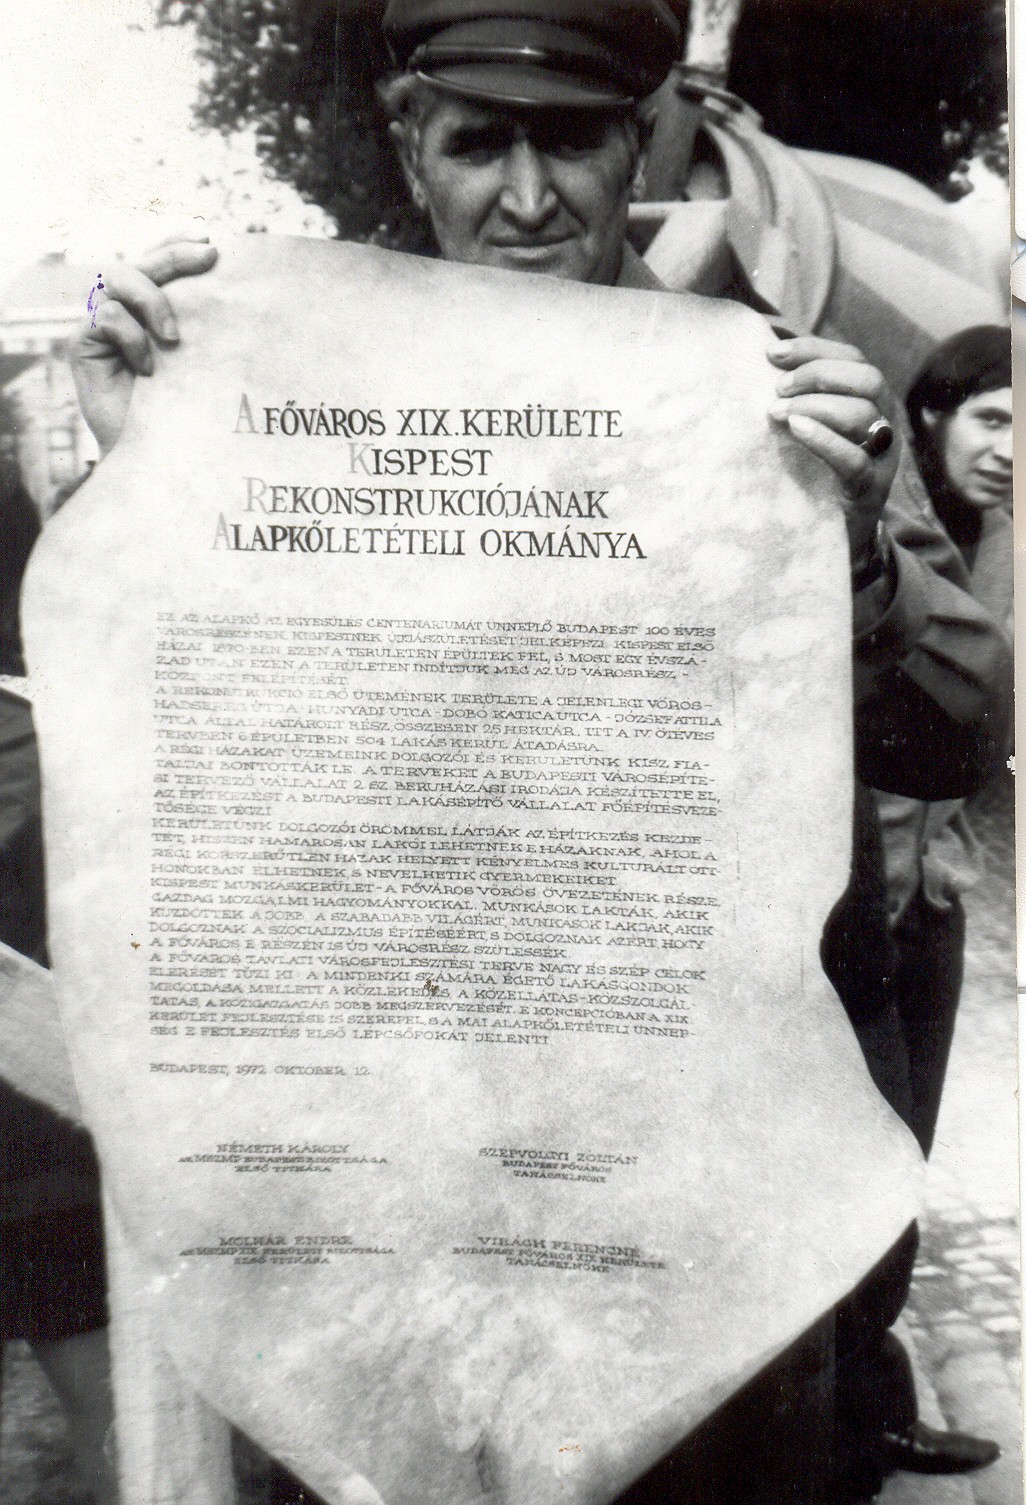 A FŐVÁROS XIX. KERÜLETE
KISPEST
REKONSTRUKCIÓJÁNAK
ALAPKŐLETÉTELI OKMÁNYA
EZ AZ ALAPKŐ AZ EGYESÜLÉS CENTENÁRIUMÁT ÜNNEPLŐ BUDAPEST 100 ÉVES
VÁROSRÉSZÉNEK, KISPESTNEK ÚJJÁSZÜLETÉSÉT JELKÉPEZI. KISPEST ELSŐ
HÁZAI 1870-BEN EZEN A TERÜLETEN ÉPÜLTEK FEL, S MOST EGY ÉVSZÁ-
ZAD UTÁN EZEN A TERÜLETEN INDÍTJUK MEG AZ ÚJ VÁROSRÉSZ-
KÖZPONT FELÉPÍTÉSÉT.
A REKONSTRUKCIÓ ELSŐ ÜTEMÉNEK TERÜLETE A JELENLEGI VÖRÖS-
HADSEREG ÚTJA - HUNYADI UTCA - DOBÓ KATICA UTCA - JÓZSEF ATTILA
UTCA ÁLTAL HATÁROLT RÉSZ, ÖSSZESEN 25 HEKTÁR. ITT A IV. ÖTÉVES
TERVBEN 6 ÉPÜLETBEN 504 LAKÁS KERÜL ÁTADÁSRA.
A RÉGI HÁZAKAT ÜZEMEINK DOLGOZÓI ÉS KERÜLETÜNK KISZ FIA-
TALJAI BONTOTTÁK LE. A TERVEKET A BUDAPESTI VÁROSÉPÍTÉ-
SI TERVEZŐ VÁLLALAT 2. SZ. BERUHÁZÁSI IRODÁJA KÉSZÍTETTE EL,
AZ ÉPÍTKEZÉST A BUDAPESTI LAKÁSÉPÍTŐ VÁLLALAT FŐÉPÍTÉSVEZE-
TŐSÉGE VÉGZI
KERÜLETÜNK DOLGOZÓI ÖRÖMMEL LÁTJÁK AZ ÉPÍTKEZÉS KEZDE-
TÉT, HISZEN HAMAROSAN LAKÓI LEHETNEK E HÁZAKNAK, AHOL A
RÉGI KORSZERŰTLEN HÁZAK HELYETT KÉNYELMES KULTURÁLT OTT-
HONOKBAN ÉLHETNEK, S NEVELHETIK GYERMEKEIKET.
KISPEST MUNKÁSKERÜLET - A FŐVÁROS VÖRÖS ÖVEZETÉNEK RÉSZE,
GAZDAG MOZGALMI HAGYOMÁNYOKKAL. MUNKÁSOK LAKTÁK, AKIK
KÜZDÖTTEK A JOBB, A SZABADABB VILÁGÉRT, MUNKÁSOK LAKJÁK, AKIK
DOLGOZNAK A SZOCIALIZMUS ÉPÍTÉSÉÉRT, S DOLGOZNAK AZÉRT, HOGY
A FŐVÁROS E RÉSZÉN IS ÚJ VÁROSRÉSZ SZÜLESSÉK.
A FŐVÁROS TÁVLATI VÁROSFEJLESZTÉSI TERVE NAGY ÉS SZÉP CÉLOK
ELÉRÉSÉT TŰZI KI: A MINDENKI SZÁMÁRA ÉGETŐ LAKÁSGONDOK
MEGOLDÁSA MELLETT A KÖZLEKEDÉS, A KÖZELLÁTÁS-KÖZSZOLGÁL-
TATÁS, A KÖZIGAZGATÁS JOBB MEGSZERVEZÉSÉT. E KONCEPCIÓBAN A XIX.
KERÜLET FEJLESZTÉSE IS SZEREPEL, S A MAI ALAPKŐLETÉTELI ÜNNEP-
SÉG E FEJLESZTÉS ELSŐ LÉPCSŐFOKÁT JELENTI
BUDAPEST, 1972. OKTÓBER 12.
NÉMETH KÁROLY
AZ MSZMP BUDAPESTI BIZOTTSÁGA
ELSŐ TITKÁRA
SZÉPVÖLGYI ZOLTÁN
BUDAPEST FŐVÁROS
TANÁCSELNÖKE
MOLNÁR ENDRE
AZ MSZMP XIX. KERÜLETI BIZOTTSÁGA
ELSŐ TITKÁRA
VIRÁGH FERENCNÉ
BUDAPEST FŐVÁROS XIX. KERÜLETE
TANÁCSELNÖKE